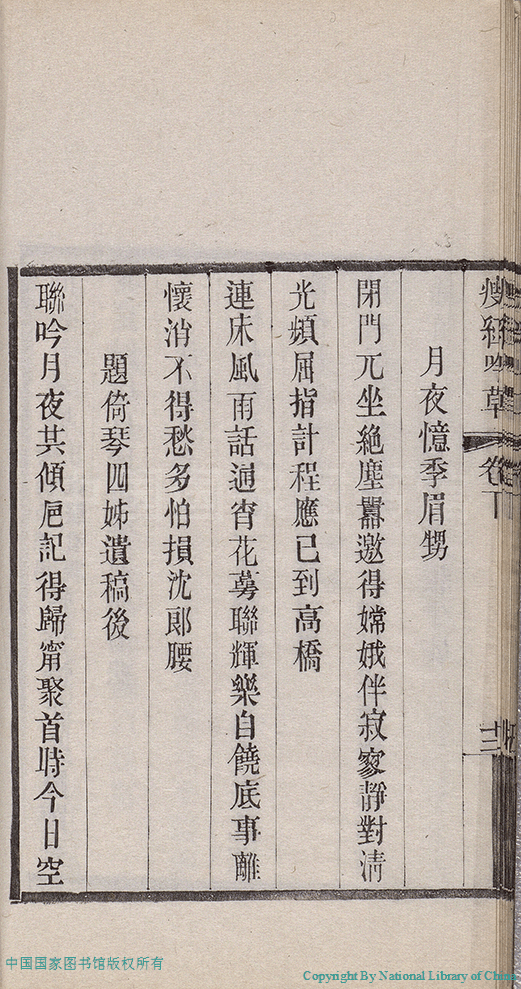 瘦紅吟草 卷下 十二
月夜憶季眉甥
閉門兀坐絶塵囂邀得嫦娥伴寂寥靜對清
光頻屈指計程應已到高橋
連床風雨話通宵花萼聯輝樂自饒底事離
懷消不得愁多怕損沈郎腰
題倚琴四姊遺稿後
聯吟月夜共傾卮記得歸甯聚首時今日空
中国国家图书馆版权所有
Copyright By National Library of China